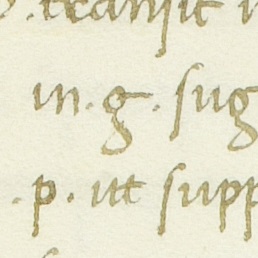 . transit
in . g . sug
. p . ut supp